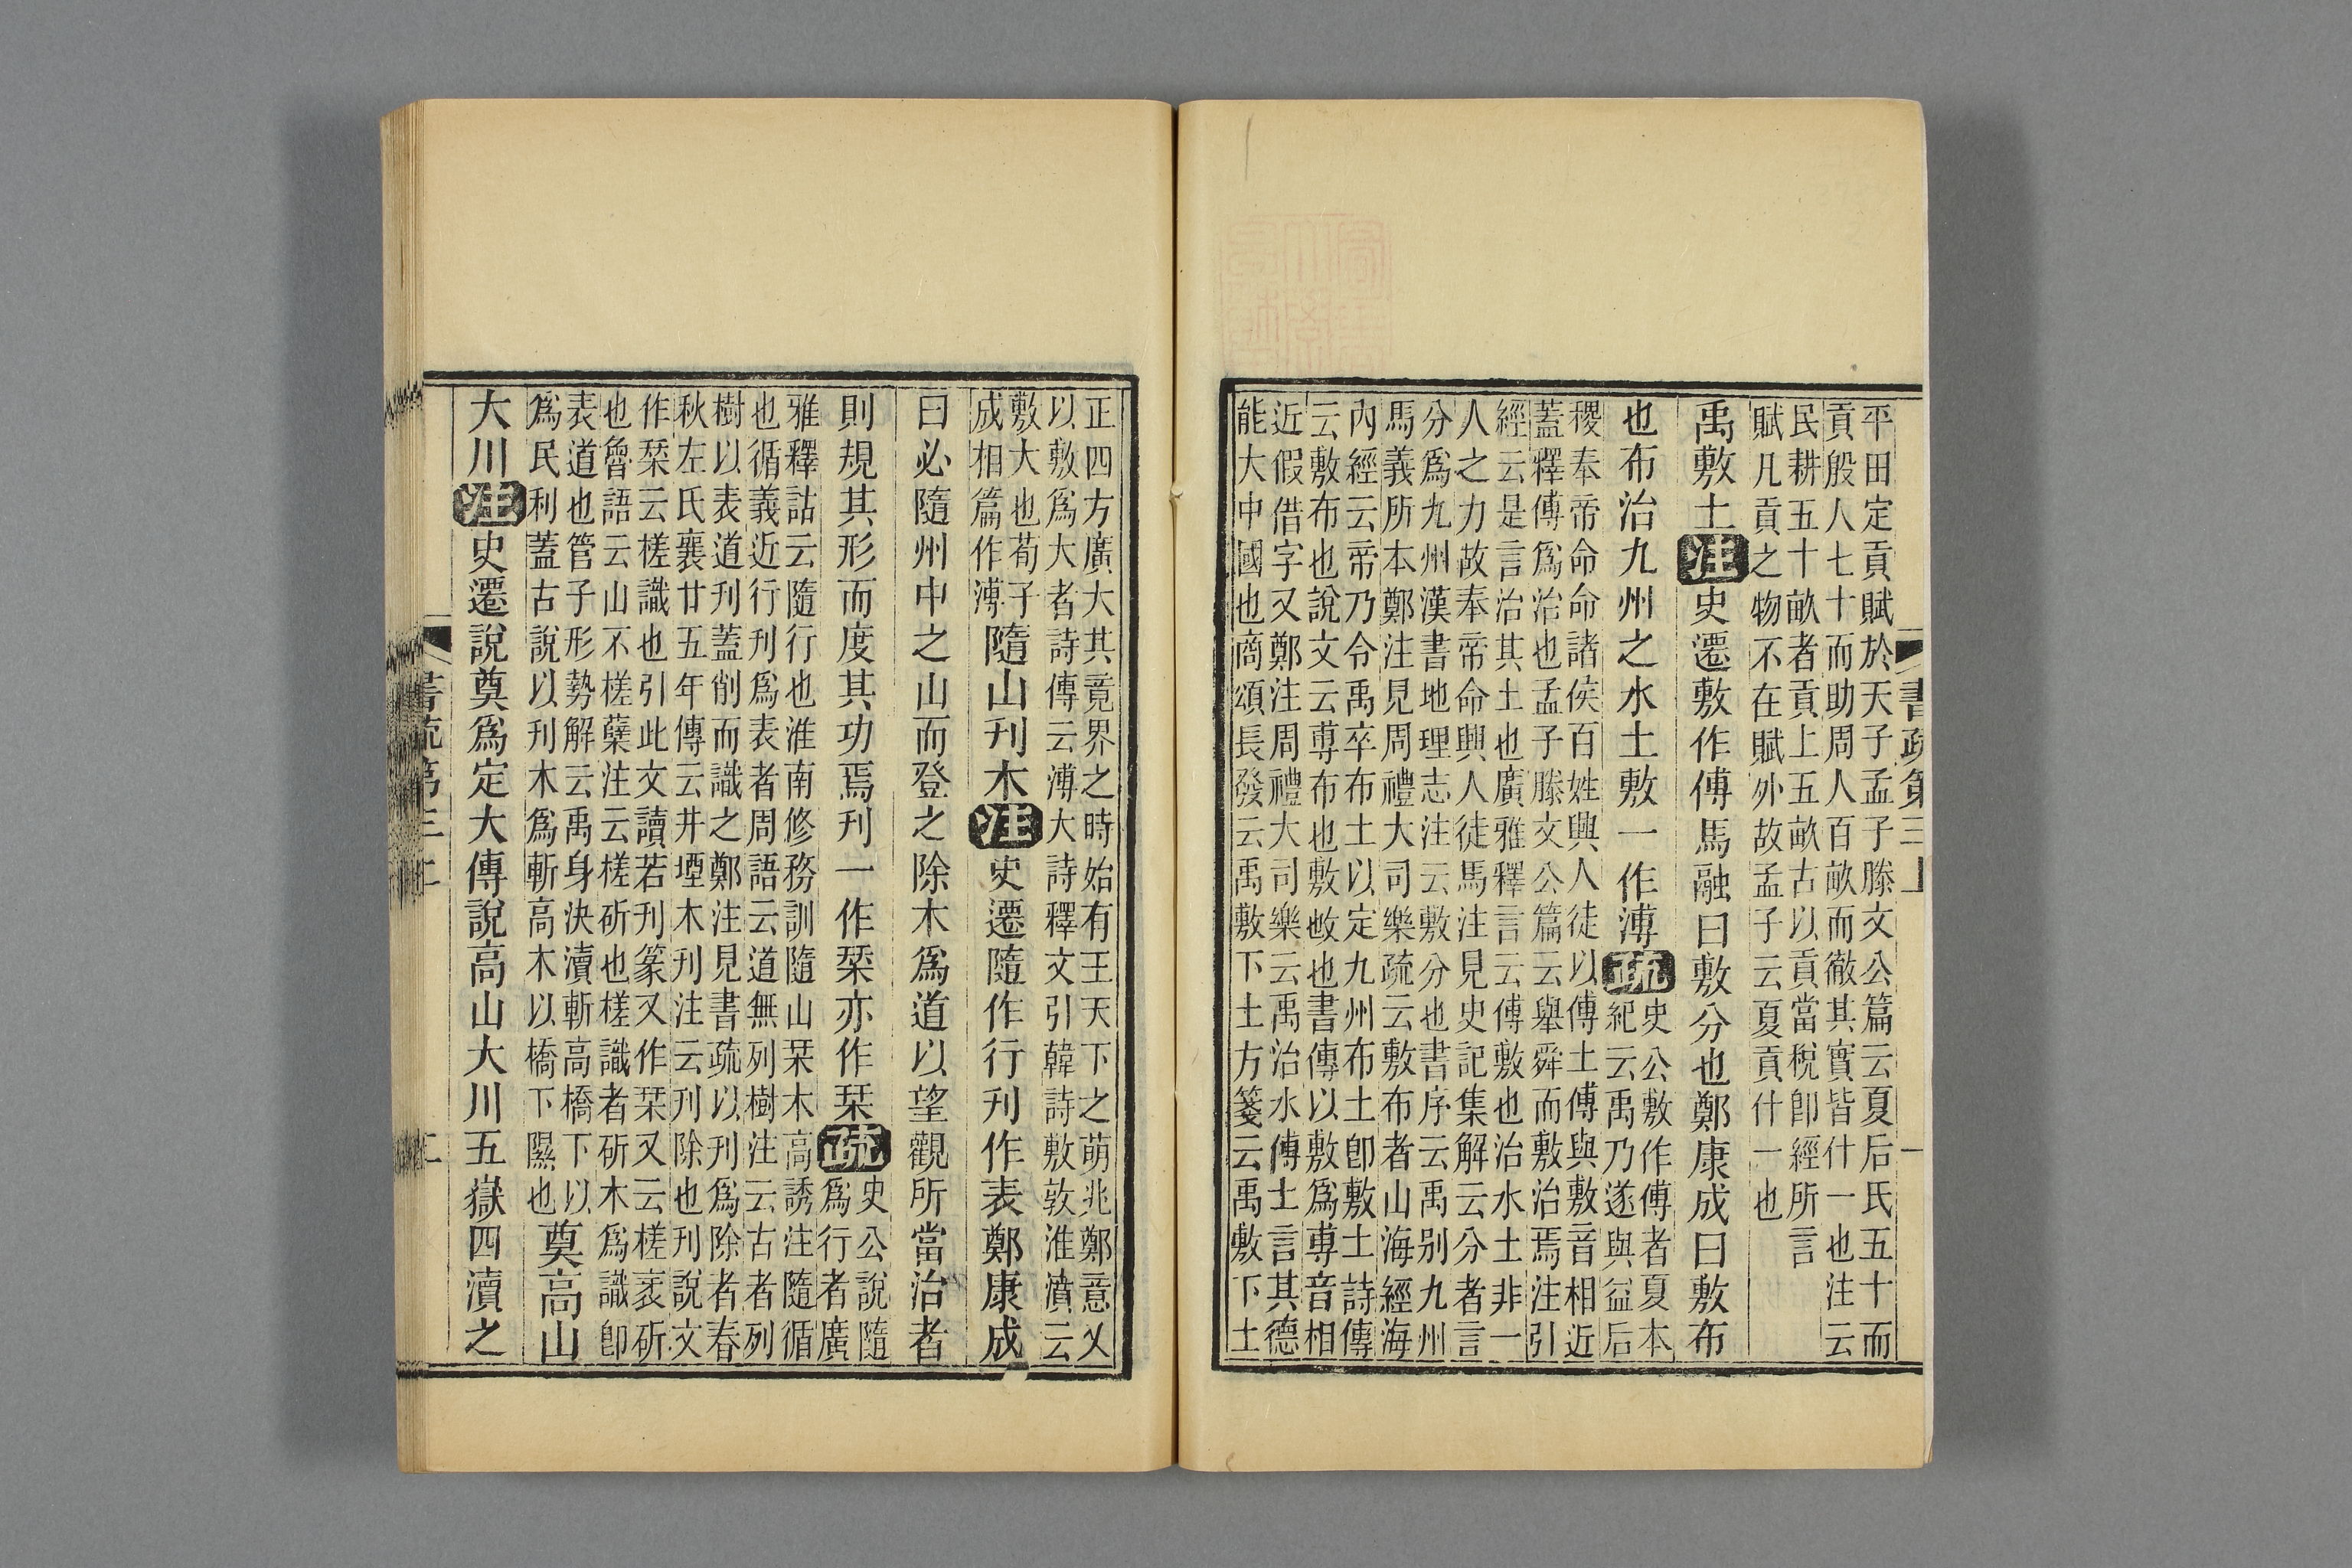 書疏第三上 一
平田定貢賦於天子孟子滕文公篇云夏后氏五十而
貢殷人七十而助周人百畝而徹其實皆什一也注云
民耕五十畝者貢上五畝古以貢當稅即經所言
賦凡貢之物不在賦外故孟子云夏貢什一也
禹敷土注史遷敷作傅馬融曰敷分也鄭康成曰敷布
也布治九州之水土敷一作溥疏史公敷作傅者夏本
紀云禹乃遂與益后
稷奉帝命命諸侯百姓興人徒以傅土傅與敷音相近
蓋釋傅爲治也孟子滕文公篇云舉舜而敷治焉注引
經云是言治其土也廣雅釋言云傅敷也治水土非一
人之力故奉帝命興人徒馬注見史記集解云分者言
分爲九州漢書地理志注云敷分也書序云禹別九州
馬義所本鄭注見周禮大司樂疏云敷布者山海經海
內經云帝乃令禹卒布土以定九州布土即敷土詩傳
云敷布也說文云尃布也敷𢻱也書傳以敷爲尃音相
近假借字又鄭注周禮大司樂云禹治水傅土言其德
能大中國也商頌長發云禹敷下土方箋云禹敷下土
正四方廣大其竟界之時始有王天下之萌兆鄭意又
以敷爲大者詩傳云溥大詩釋文引韓詩敷敦淮濆云
敷大也荀子
成相篇作溥隨山刋木注史遷隨作行刋作表鄭康成
曰必隨州中之山而登之除木爲道以望觀所當治者
則規其形而度其功焉刋一作栞亦作栞疏史公說隨
爲行者廣
雅釋詁云隨行也淮南修務訓隨山栞木高誘注隨循
也循義近行刋爲表者周語云道無列樹注云古者列
樹以表道刋蓋削而識之鄭注見書疏以刋爲除者春
秋左氏襄廿五年傳云井堙木刋注云刋除也刋說文
作栞云槎識也引此文讀若刋篆又作栞又云槎衺斫
也魯語云山不槎蘖注云槎斫也槎識者斫木爲識即
表道也管子形勢解云禹身決瀆斬高橋下以
爲民利蓋古說以刋木爲斬高木以橋下隰也奠高山
大川注史遷說奠爲定大傳說高山大川五嶽四瀆之
書疏第三上 二